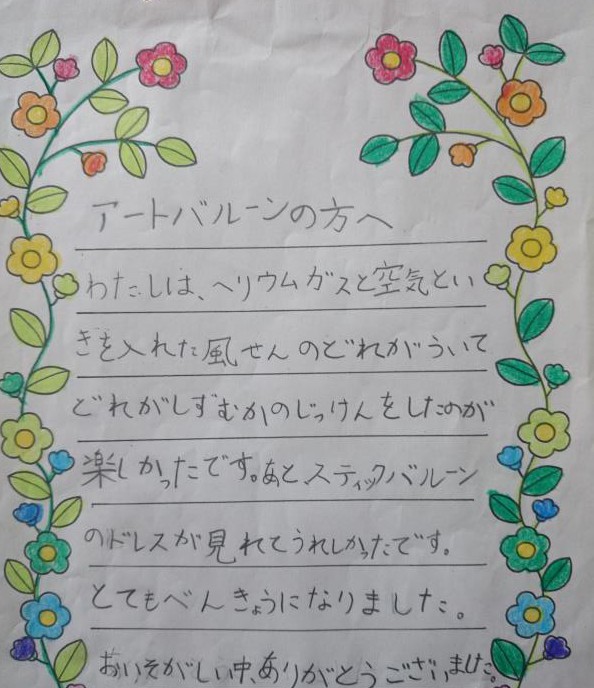 アートバルーンの方へ
わたしは、ヘリウムガスと空気とい
きを入れた風せんのどれがういて
どれがしずむかのじっけんをしたのが
楽しかったです。あと、スティックバルーン
のドレスが見れてうれしかったです。
とてもべんきょうになりました。
おいそがしい中、ありがとうございました。